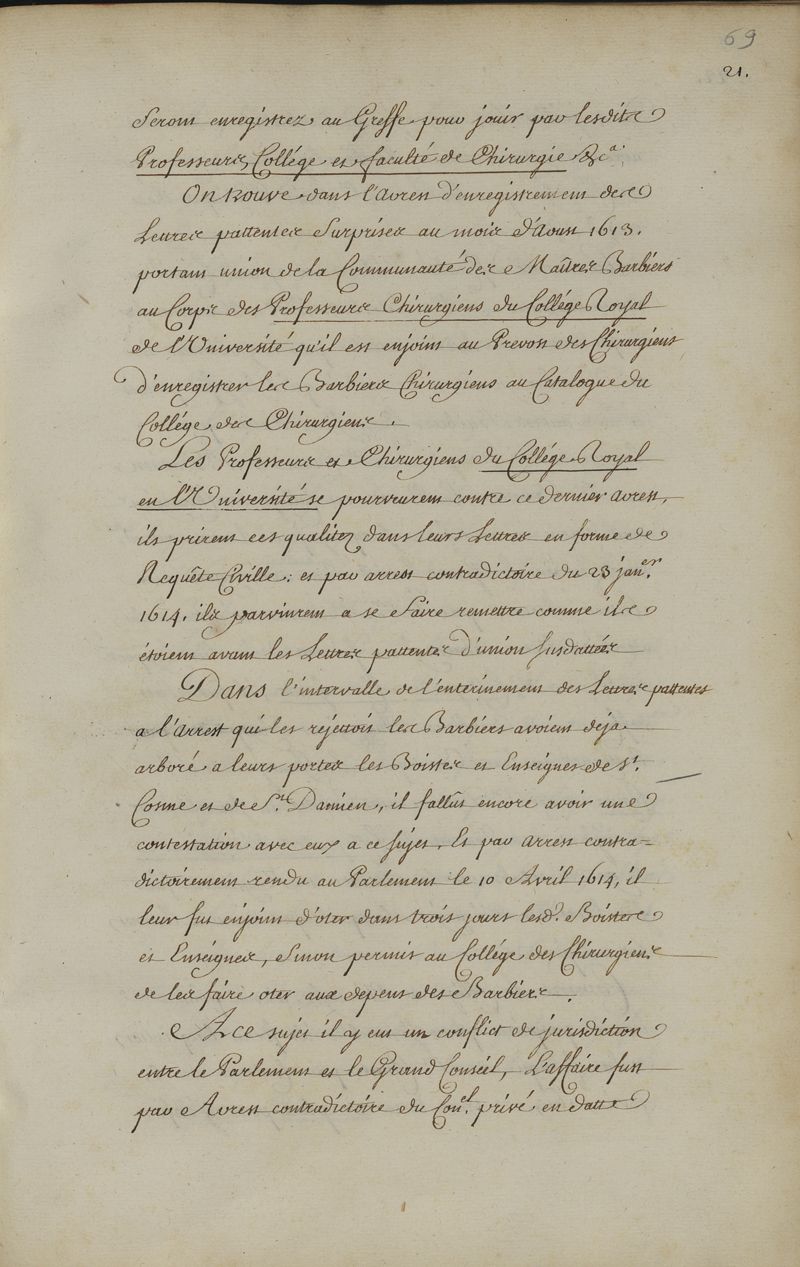 69
21.
Seront enregistrez au Greffe pour jouir par lesdits
Professeurs, Collége et faculté de Chirurgie &c.a
On trouve dans l'Arrest d'enregistrement des
Lettres pattentes Surprises au mois d'Aoust 1613.
portant union de la Communauté des Maîtres Barbiers
au Corps des Professeurs Chirurgiens du Collége Royal
de l'Université qu'il est enjoint au Prevost des Chirurgiens
d'enregistrer les Barbiers Chirurgiens au Catalogue du
Collége des Chirurgiens.
Les Professeurs et Chirurgiens du Collége Royal
en l'Université se pourveurent contre ce dernier arrest,
ils prirent ces qualitez dans leurs Lettres en forme de
Requête Civille; et par arrest contradictoire du 23 jan.er
1614. ils parvinrent a se faire remettre comme ils
étoient avant les Lettres pattentes d'union susdattées
Dans l'intervalle de l'enterinement des Lettres pattentes
a l'Arrest qui les rejettoit les Barbiers avoient deja
arboré a leurs portes les Boistes et Enseignes de St.
Cosme et de St. Damien, il fallût encore avoir une
contestation avec eux a ce sujet, Et par arrest contra-
dictoirement rendu au Parlement le 10 Avril 1614, il
leur fut enjoint d'oter dans trois jours lesd. Boistes
et Enseignes, Sinon permis au Collége des Chirurgiens
de les faire oter aux depens des Barbiers.
A ce sujet il y eut un conflict de jurisdiction
entre le Parlement et le Grand Conseil, L'affaire fut
par Arrest contradictoire du Con.el privé en datte